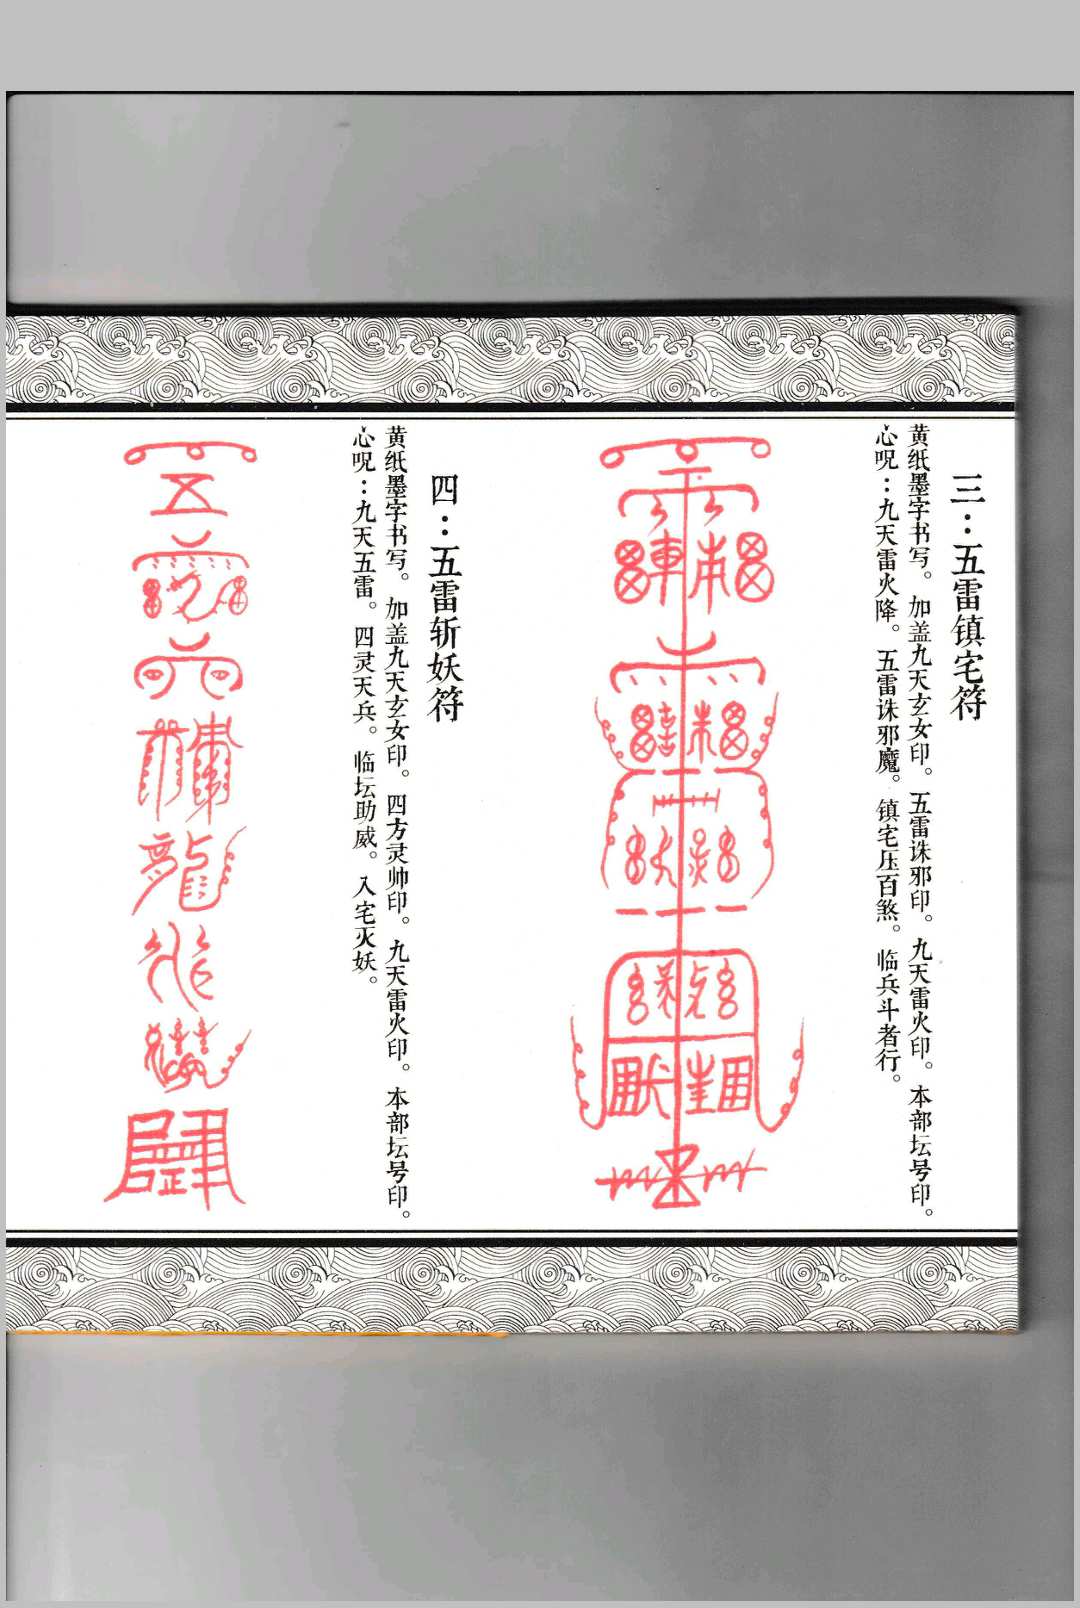 三：五雷镇宅符
黄纸墨字书写。加盖九天玄女印。五雷诛邪印。九天雷火印。本部坛号印。
心呪：九天雷火降。五雷诛邪魔。镇宅压百煞。临兵斗者行。
四：五雷斩妖符
黄纸墨字书写。加盖九天玄女印。四方灵帅印。九天雷火印。本部坛号印。
心呪：九天五雷。四灵天兵。临坛助威。入宅灭妖。